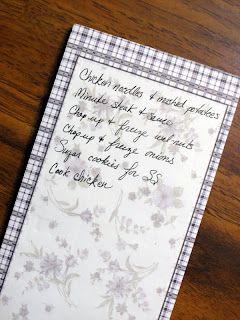 Chicken noodles & mashed potatoes
Minute Steak & Sauce
Chop up & freeze wal nuts
Chop up & freeze onions
Sugar cookies for SS
Cook chicken